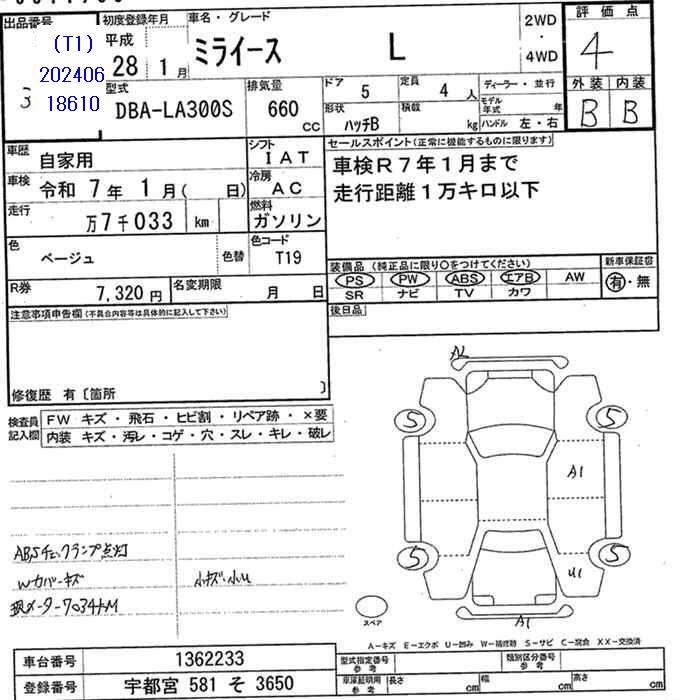 出品番号
(T1)
202406
18610
3
初度登録年月
平成
28 1 月
車名・グレード
ミライース L
2WD
・
4WD
評価点
4
型式
DBA-LA300S
排気量
660
CC
ドア
5
定員
4 人
ディーラー・並行
外装 内装
B B
形状
ハッチB
積載
kg
モデル年式
年
ハンドル 左・右
車歴
自家用
シフト
IAT
車検
令和 7 年 1 月( 日)
冷房
AC
走行
万7千033 km
燃料
ガソリン
色
ベージュ
色替
色コード
T19
R券
7,320 円
名変期限
月 日
セールスポイント(正常に機能するものに限ります)
車検R7年1月まで
走行距離1万キロ以下
装備品(純正品に限り○をつけてください)
PS PW ABS エアB AW
SR ナビ TV カワ
新車保証書
有・無
後日品
注意事項申告欄(不具合内容等は具体的に記入して下さい)
修復歴 有〔箇所 〕
検査員
記入欄
FW キズ・飛石・ヒビ割・リペア跡・×要
内装 キズ・汚レ・コゲ・穴・スレ・キレ・破レ
ABSチェックランプ点灯
Wカバーキズ
小キズ・小U
現メーター7034kM
A2
5 5
A1
5 5
U1
A1
スペア
A-キズ E-エクボ U-凹み W-補修跡 S-サビ C-腐食 XX-交換済
車台番号
1362233
登録番号
宇都宮 581 そ 3650
型式指定番号
参考
類別区分番号
参考
車庫証明用
参考
長さ cm
幅 cm
高さ cm